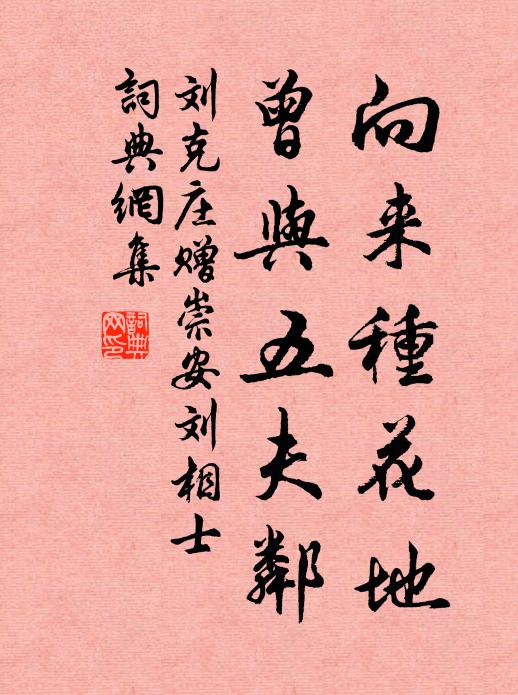 向来種花地
曾與五夫鄰
刘克庄赠崇安刘相士
詞典網集
詞典網印